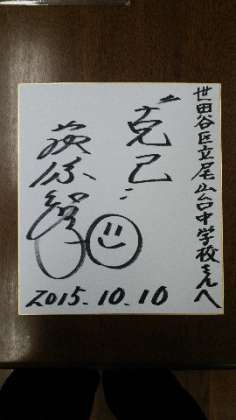 世田谷区立尾山台中学校さんへ
克己
荻原智
2015.10.10